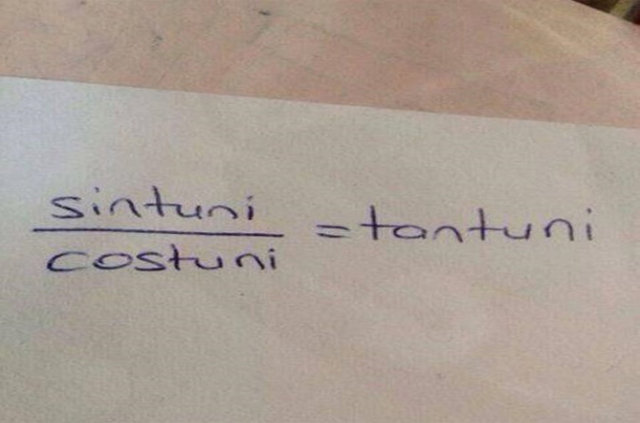 sintuni
costuni
= tantuni